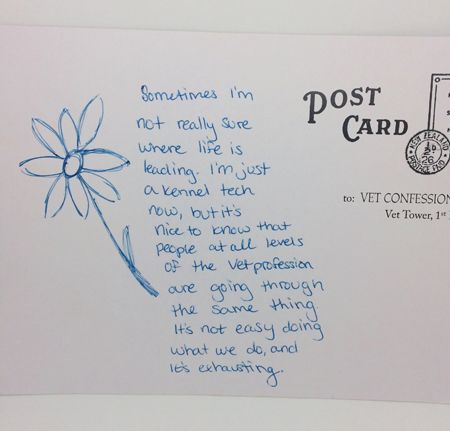 Sometimes I'm
not really sure
where life is
leading. I'm just
a kennel tech
now, but it's
nice to know that
people at all levels
of the vet profession
are going through
the same thing
It's not easy doing
what we do, and
it's exhausting.
POST
CARD
NEW ZEALAND
26
POSTAGE PAID
to: VET CONFESSION
Vet Tower, 1st